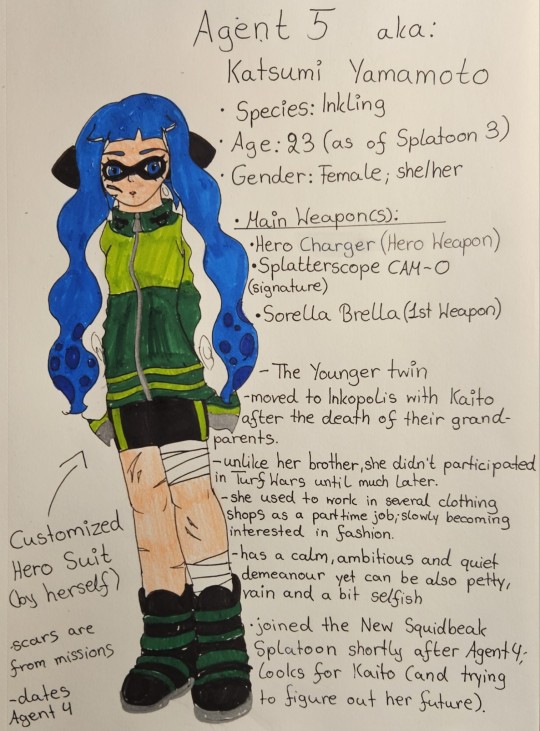 Agent 5 aka:
Katsumi Yamamoto
• Species: Inkling
• Age: 23 (as of Splatoon 3)
• Gender: Female; she/her
• Main Weapon(s):
•Hero Charger (Hero Weapon)
•Splatterscope CAM-O
(signature)
•Sorella Brella (1st Weapon)
- The Younger twin
-moved to Inkopolis with Kaito
after the death of their grand-
parents.
-unlike her brother, she didn't participated
in Turf Wars until much later.
-she used to work in several clothing
shops as a parttime job; slowly becoming
interested in fashion.
-has a calm, ambitious and quiet
demeanour yet can be also petty,
vain and a bit selfish
•joined the New Squidbeak
Splatoon shortly after Agent 4;
looks for Kaito (and trying
to figure out her future).
Customized
Hero Suit
(by herself)
•scars are
from missions
-dates
Agent 4